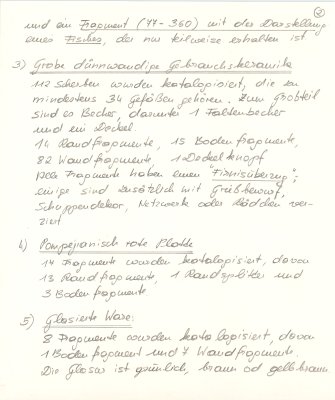 ②
und ein Fragment (77-350) mit der Darstellung
eines Fisches, der nur teilweise erhalten ist
3) Grobe dünnwandige Gebrauchskeramik
112 Scherben wurden katalogisiert, die zu
mindestens 34 Gefäßen gehören. Zum Großteil
sind es Becher, darunter 1 Faltenbecher
und ein Deckel.
14 Randfragmente, 15 Bodenfragmente,
82 Wandfragmente 1 Deckelknopf
Alle Fragmente haben einen "Firnisüberzug";
einige sind zusätzlich mit Grießbewurf,
Schuppendekor, Netzwerk oder Rädchen ver-
ziert
4) Pompejianisch rote Platte
14 Fragmente wurden katalogisiert, davon
13 Randfragmente, 1 Randsplitter und
3 Bodenfragmente
5) Glasierte Ware:
8 Fragmente wurden katalogisiert, davon
1 Bodenfragment und 7 Wandfragmente.
Die Glasur ist grünlich, braun od gelbbraun